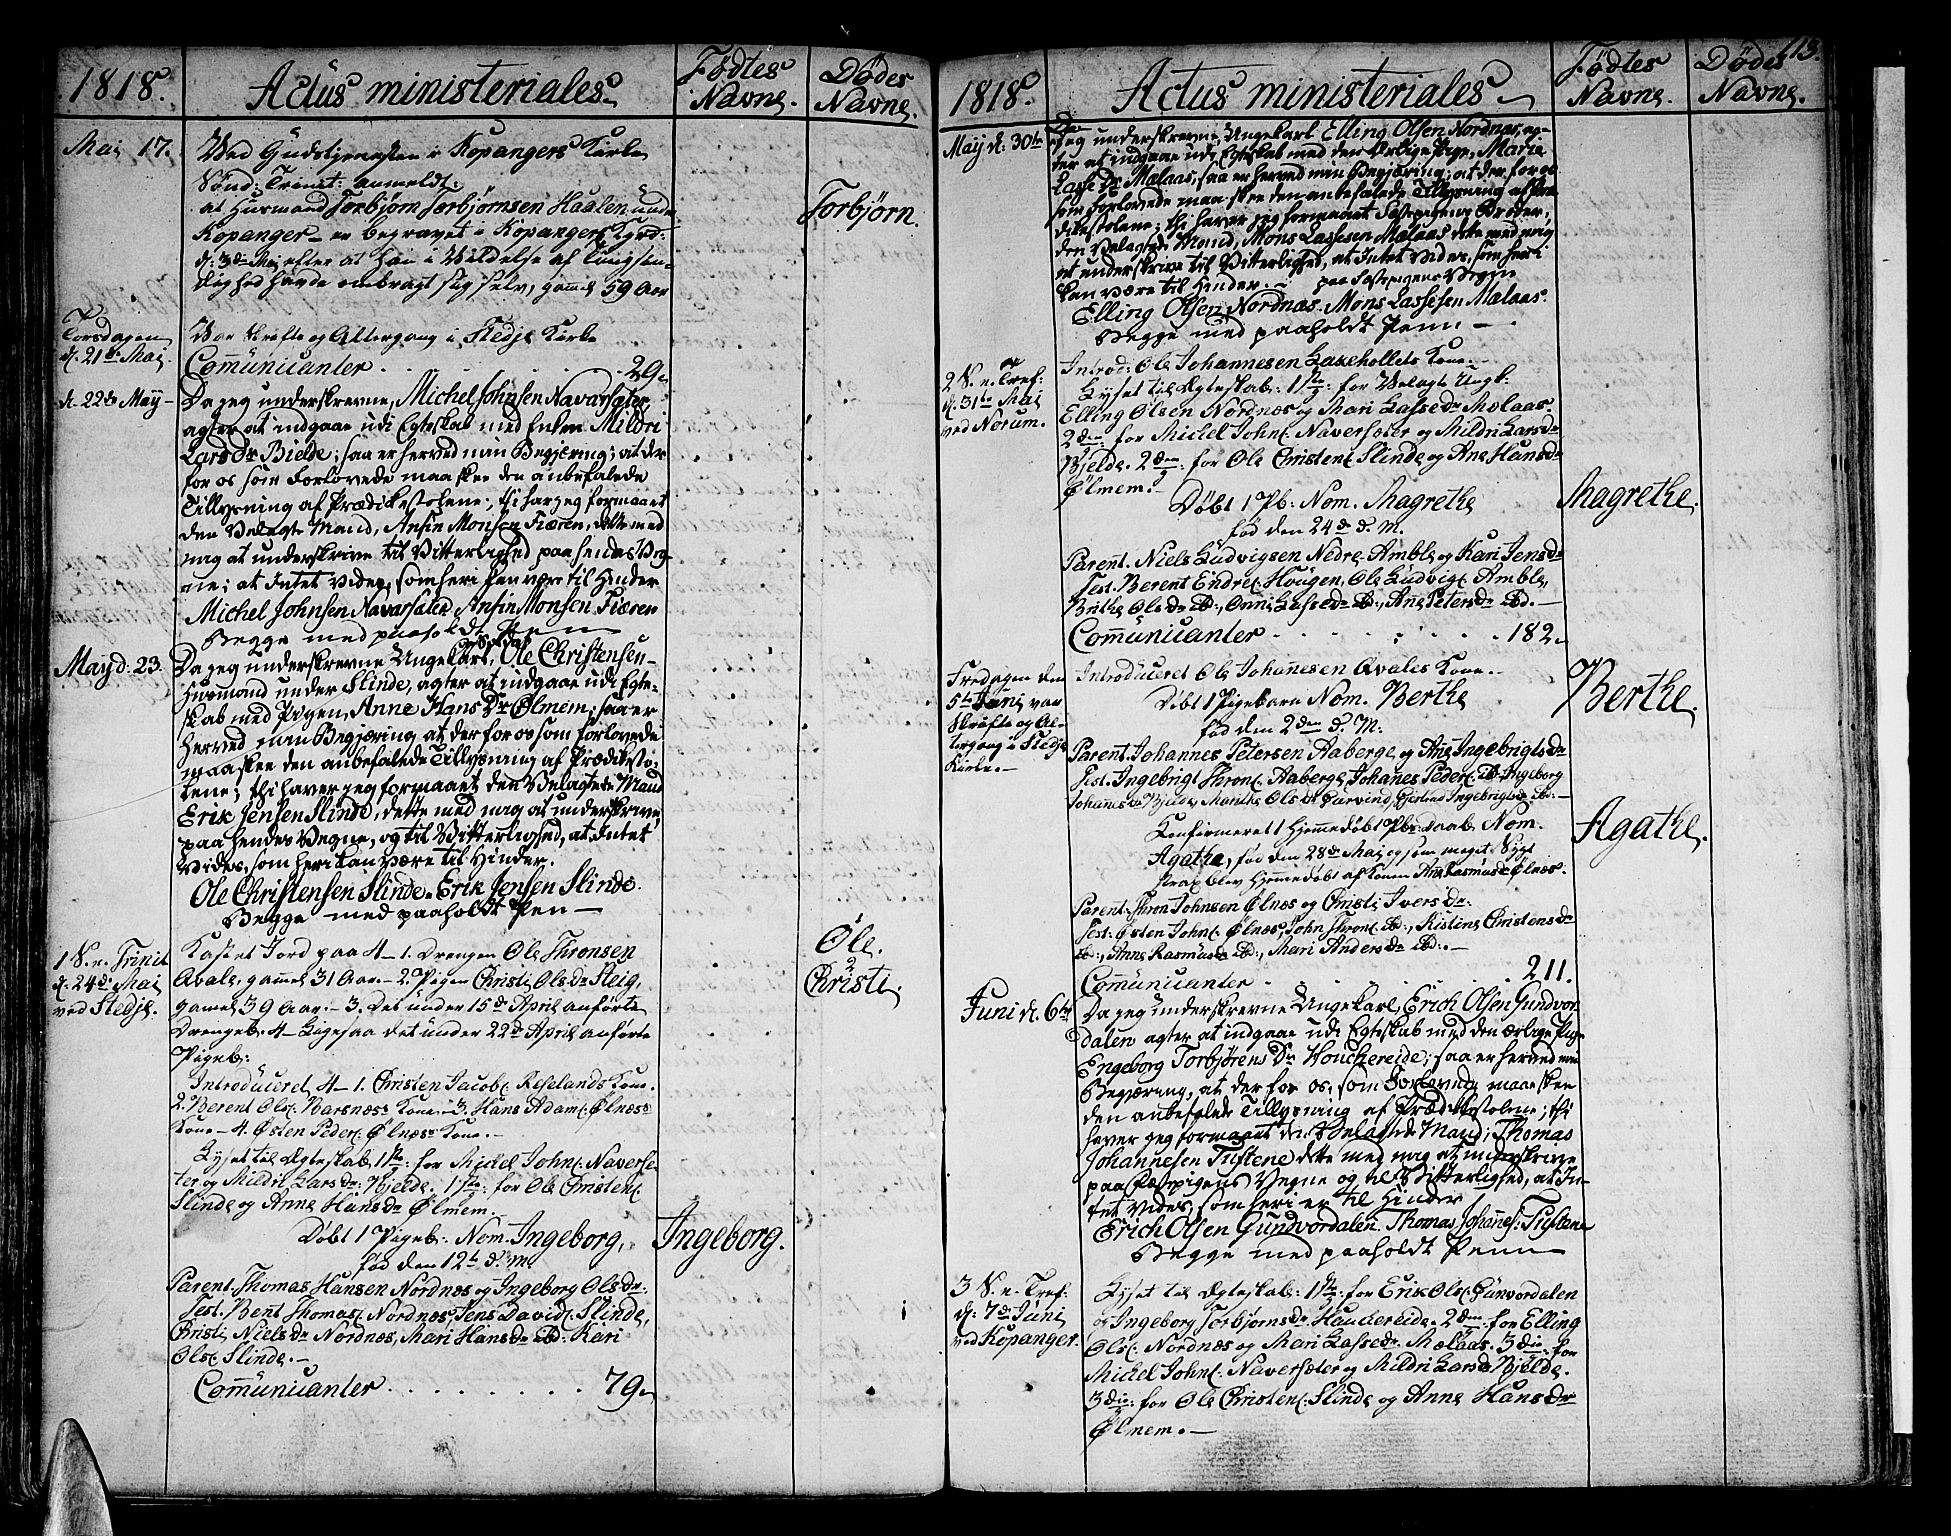 1818.
Actus ministeriales
Fødtes Navne.
Dødes Navne.
Mai 17.
Ved Gudstjenesten i Kopangers Kirke
Sönd: Trinit: anmeldt.
at Husmand Torbjørn Torbjørnsen Haalen under
Kopanger er begravet i Kopangers
d: 3die Maj efter at han i Vildelse af Tungsin-
dighed havde ombragt sig selv, gammel 59 Aar
Torbjørn.
Torsdagen
d. 21de Mai
Var Skrifte og Altergang i Stedje Kirke
Communicanter . . . 29.
d. 22de Maÿ
Da jeg underskrevne, Michel Johnsen Navarsæter
agter at indgaae udi Egteskab med Enken Mildri
Lars Dr Bielde; saa er herved min Begjæring; at der
for os som Forlovede maa skee den anbefalede
Tillysning af Prædikestolene; thi har jeg formaaet
den Velagte Mand, Ansin Monsen Fiæren, dette med
mig at underskrive til Vitterlighed paa hendes Veg-
ne; at Intet Vides, som heri kan være til Hinder
Michel Johnsen Navarsæter, Ansin Monsen Fiæren
Begge med paaholdt Pen
Maÿ d. 23.
Da jeg underskrevne Ungekarl, Ole Christensen
Husmand under Slinde, agter at indgaae udi Egte-
skab med Pigen, Anne Hans Dr Ølmem; saa er
herved min Begjæring at der for os som forlovede
maa skee den anbefalede Tillysning af Prædikesto-
lene; thi haver jeg formaaet den Velagte Mand
Erik Jensen Slinde, dette med mig at underskrive
paa hendes Vegne, og til Vitterlighed, at Intet
Vides, som heri kan være til Hinder.
Ole Christensen Slinde. Erik Jensen Slinde.
Begge med paaholdt Pen
1 S. e. Trinit
d. 24de Mai
ved Stedje.
Kastet Jord paa 4 - 1. Drengen Ole Thronsen
Avale, gammel 31 Aar - 2. Pigen Christi Ols Dr Steig,
gamel 39 Aar. - 3. Det under 15de April anførte
Drengeb. 4 - Ligesaa det under 22de April anførte
Pigeb:
Øle.
2
Christi.
Introduceret 4 - 1. Christen Jacobs. Reselands Kone.
2. Berent Ols: Barsnæs Kone. - 3. Hans Adam: Ølnæs
Kone - 4. Østen Peder: Ølnæs Kone. -
Lyset til Ægteskab, 1ste: for Mickel John: Naverse-
ter og Mildri Lars Dr Bjelde. 1ste: for Ole Christens:
Slinde og Anne Hans Dr Ølmem.
Döbt 1 Pigeb. Nom. Ingeborg,
fød den 12te d: M
Ingeborg.
Parent. Thomas Hansen Nordnæs og Ingeborg Ols Dr:
Test. Bent Thomas: Nordnæs, Jens David: Slinde,
Christi Niels Dr Nordnæs, Mari Hans Dr ibd: Kari
Ols: Slinde. -
Communicanter . . . . . . . . . 79.
1818.
Actus ministeriales
Fødtes Navne.
Dödes Navne.
113.
Maÿ d: 30te
Da jeg underskrevne Ungekarl Elling Olsen Nordnæs, ag-
ter at indgaae udi Egteskab med den Ærlige Pige, Marie
Lasse Dr Mælaas, saa er herved min Begjæring; at der for os
som Forlovede maa skee den anbefalede Tillysning af Præ-
dikestolene; thi haver jeg formaaet Fæstepigens Broder,
den Velagte Mand, Mons Lassesen Mælaas dette med mig
at underskrive til Vitterlighed, at Intet vides, som heri
kan være til Hinder. paa Fæstepigens Vegne
Elling Olsen Nordnæs. Mons Lassesen Mælaas.
Begge med paaholdt Penn. -
2 S. e. Tref:
d: 31te Mai
ved Norum.
Introd: Ole Johannesen Laxehollets Kone. -
Lyset til Ægteskab: 1ste: for Velagte Ungk:
Elling Olsen Nordnæs og Mari Lasse Dr Mælaas.
2den: for Mickel John: Naversæter og Mildri Lars Dr
Bjelde. 2den: for Ole Christen: Slinde og Ane Hans Dr
Ølmem. -
Døbt 1 Pb: Nom. Magrethe
fød den 24de d. M.
Magrethe.
Parent. Niels Ludvigsen Nedre Amble og Kari Jens Dr
Test. Berent Endre: Hougen, Ole Ludvig: Amble,
Brithe Ols Dr ibd:, Onni Lasse Dr ibd:, Ane Peters Dr ibd. -
Communicanter . . . . . . . 182.
Fredagen den
5te Juni var
Skrifte og Al-
tergang i Stedje
Kirke. -
Introduceret Ole Johanesen Avales Kone. -
Döbt 1 Pigebarn Nom. Berthe
fød den 2den d. M.
Berthe.
Parent. Johannes Petersen Aaberge og Ane Ingebrigts Dr
Test. Ingebrigt Thron: Aaberge, Johanes Peder: ibd. Ingeborg
Johanes Dr Bjelde, Marithe Ols Dr Qvarvind, Gjertrud Ingebrigts Dr ibd: -
Konfirmeret 1 Hjemmedøbt Pb: Nom.
Agathe, fød den 28de Maj og som meget Sygt
strax blev Hjemmedøbt af Konen Ane Rasmus Dr Ølnæs.
Agathe.
Parent: Thron Johnsen Ølnæs og Christi Ivers Dr.
Test: Østen John: Ølnæs, John Thron: ibd:, Kistine Christens Dr
ibd:, Anne Rasmus Dr ibd:, Mari Anders Dr ibd: -
Communicanter . . . . 211.
Juni d. 6te
Da jeg underskrevne Ungekarl, Erich Olsen Gundvor-
dalen agter at indgaae udi Egteskab med den ærlige Pige
Engeborg Torbjørens Dr Houckereide; saa er herved min
Begjæring, at der for os, som Forlovede maa skee
den anbefalede Tillysning af Prædikestolene; thi
haver jeg formaaet den Velagte Mand, Thomas
Johannesen Tuftene dette med mig at underskrive
paa Fæstepigens Vegne og til Vitterlighed, at In-
tet Vides, som heri er til Hinder
Erich Olsen Gundvordalen. Thomas Johannes: Tuftene
Begge med paaholdt Penn
3 S. e. Tref:
d: 7de Juni
ved Kopanger.
Lyset til Ægteskab: 1ste: for Erik Ols: Gunvordalen
og Ingeborg Torbjørns Dr Haukereide. 2den: for Elling
Ols: Nordnæs og Mari Lasse Dr. Mælaas. 3die: for
Mickel John: Naversæter og Mildri Lars Dr Bjelde.
3die: for Ole Christen: Slinde og Anne Hans Dr
Ølmem. -